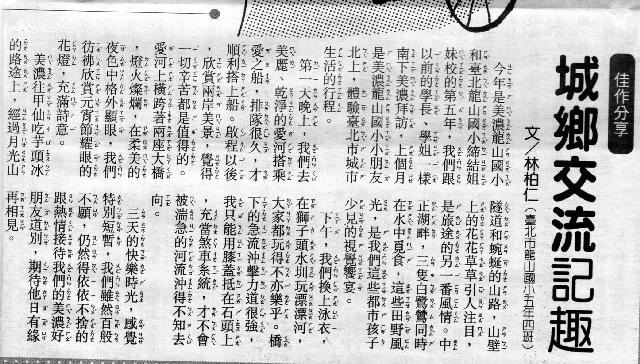 佳作分享
城鄉交流記趣
文／林柏仁（臺北市龍山國小五年四班）
今年是美濃龍山國小
和臺北龍山國小締結姐
妹校的第五年，我們跟
以前的學長、學姐一樣
南下美濃拜訪，上個月
是美濃龍山國小小朋友
北上，體驗臺北市城市
生活的行程。
第一天晚上，我們去
美麗、乾淨的愛河搭乘
愛之船，排隊很久，才
順利搭上船。啟程以後
，欣賞兩岸美景，覺得
一切辛苦都是值得的。
愛河上橫跨著兩座大橋
，燈火燦爛，在柔美的
夜色中格外顯眼，我們
彷彿欣賞元宵節耀眼的
花燈，充滿詩意。
美濃往甲仙吃芋頭冰
的路途上，經過月光山
隧道和蜿蜒的山路，山壁
上的花花草草引人注目，
是旅途的另一番風情。中
正湖畔，三隻白鷺鷥同時
在水中覓食，這些田野風
光，是我們這些都市孩子
少見的視覺饗宴。
下午，我們換上泳衣，
在獅子頭水圳玩漂漂河，
大家都玩得不亦樂乎。橋
下的急流沖擊力道很強，
我只能用膝蓋抵在石頭上
，充當煞車系統，才不會
被湍急的河流沖得不知去
向。
三天的快樂時光，感覺
特別短暫，我們雖然百般
不願，仍然得依依不捨的
跟熱情接待我們的美濃好
朋友道別，期待他日有緣
再相見。